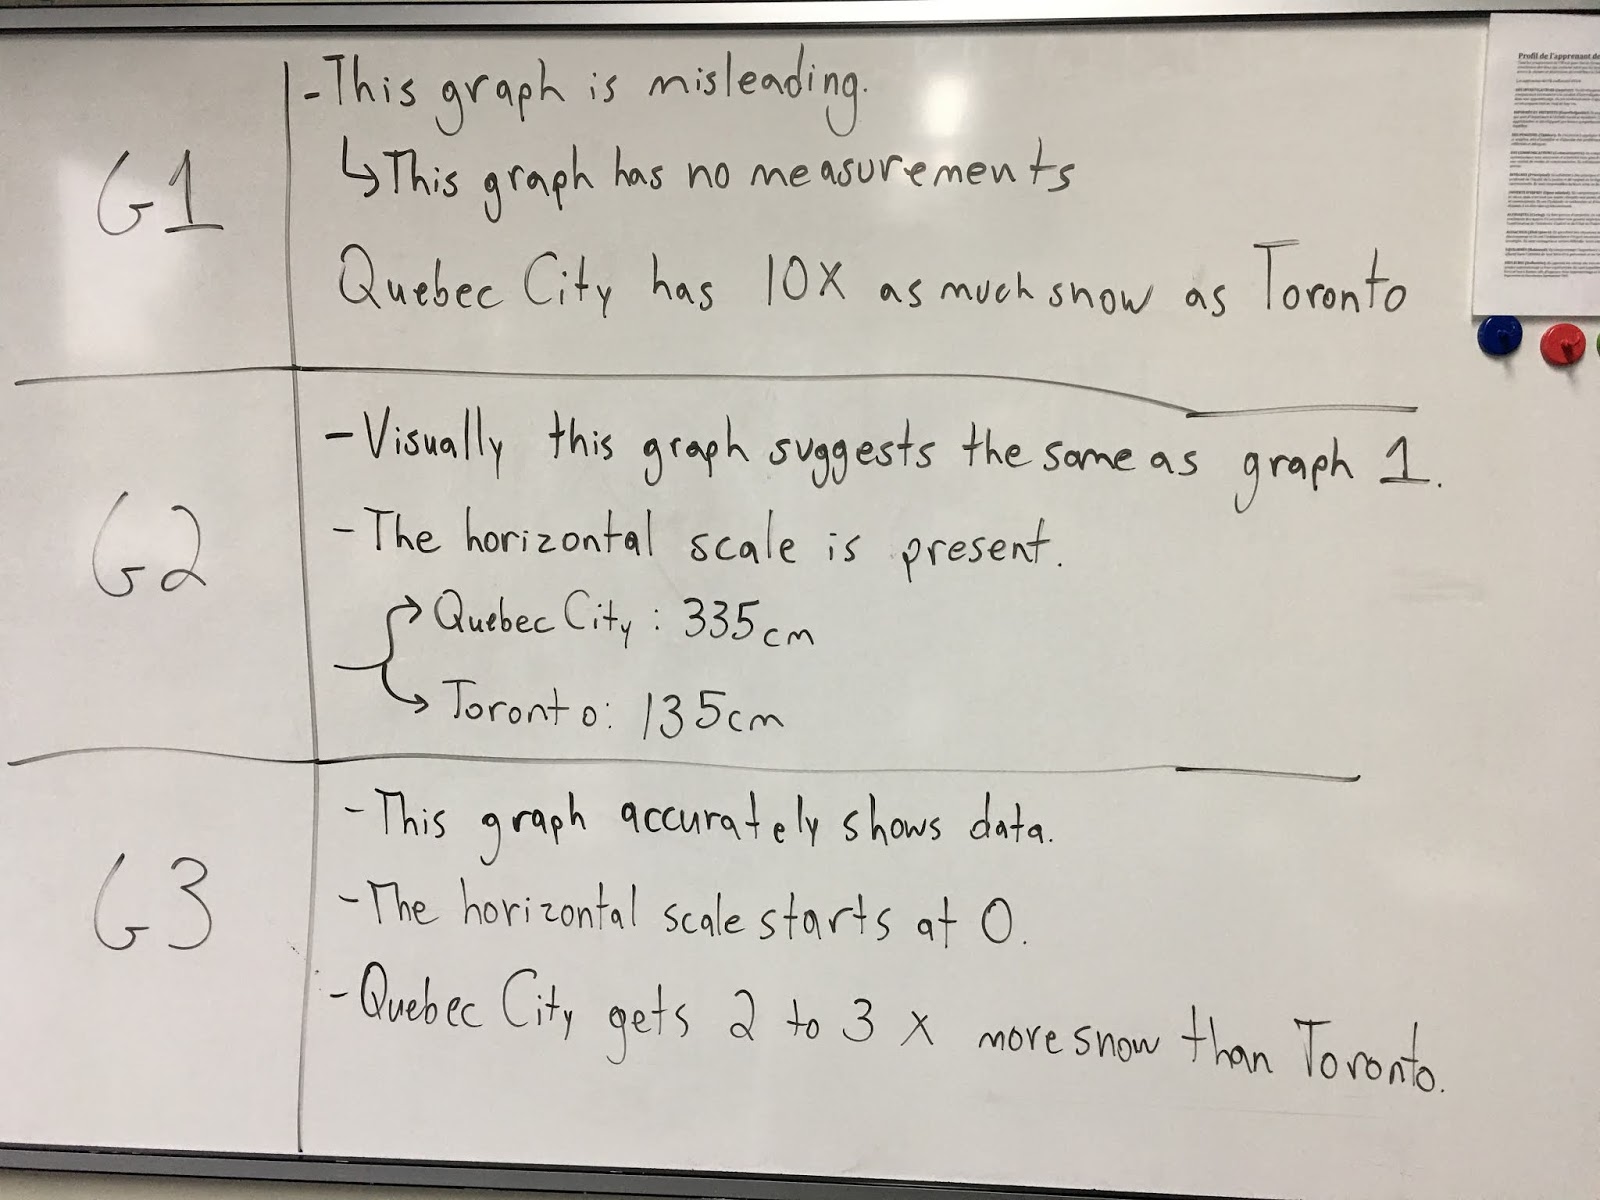 G1
- This graph is misleading.
↳ This graph has no measurements
Quebec City has 10X as much snow as Toronto
G2
- Visually this graph suggests the same as graph 1.
- The horizontal scale is present.
→ Quebec City: 335cm
→ Toronto: 135cm
G3
- This graph accurately shows data.
- The horizontal scale starts at 0.
- Quebec City gets 2 to 3 x more snow than Toronto.
Profil de l'apprenant de